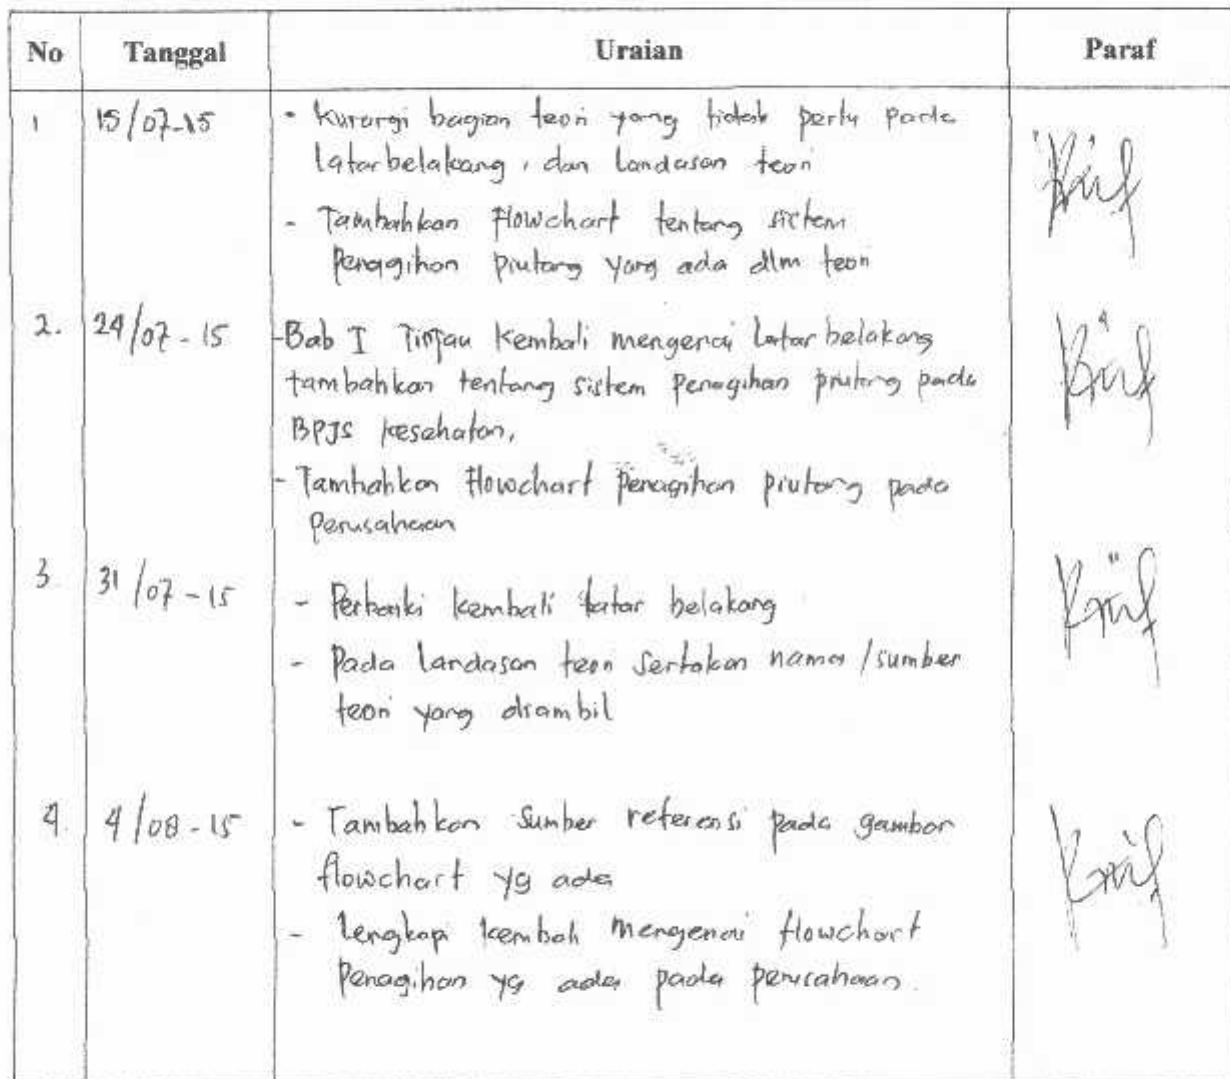 No Tanggal Uraian Paraf
1 15/07-15 - Kurangi bagian teori yang tidak perlu pada
latar belakang, dan landasan teori
- Tambahkan Flowchart tentang sistem
Penagihan Piutang yang ada dlm teori
2. 24/07-15 - Bab I Tinjau Kembali mengenai latar belakang
tambahkan tentang sistem Penagihan piutang pada
BPJS Kesehatan,
- Tambahkan Flowchart penagihan piutang pada
Perusahaan
3. 31/07-15 - Perbaiki kembali latar belakang
- Pada landasan teori Sertakan nama /sumber
teori yang diambil
4. 4/08-15 - Tambahkan Sumber referensi pada gambar
flowchart yg ada
- Lengkapi kembali Mengenai flowchart
Penagihan yg ada pada perusahaan.